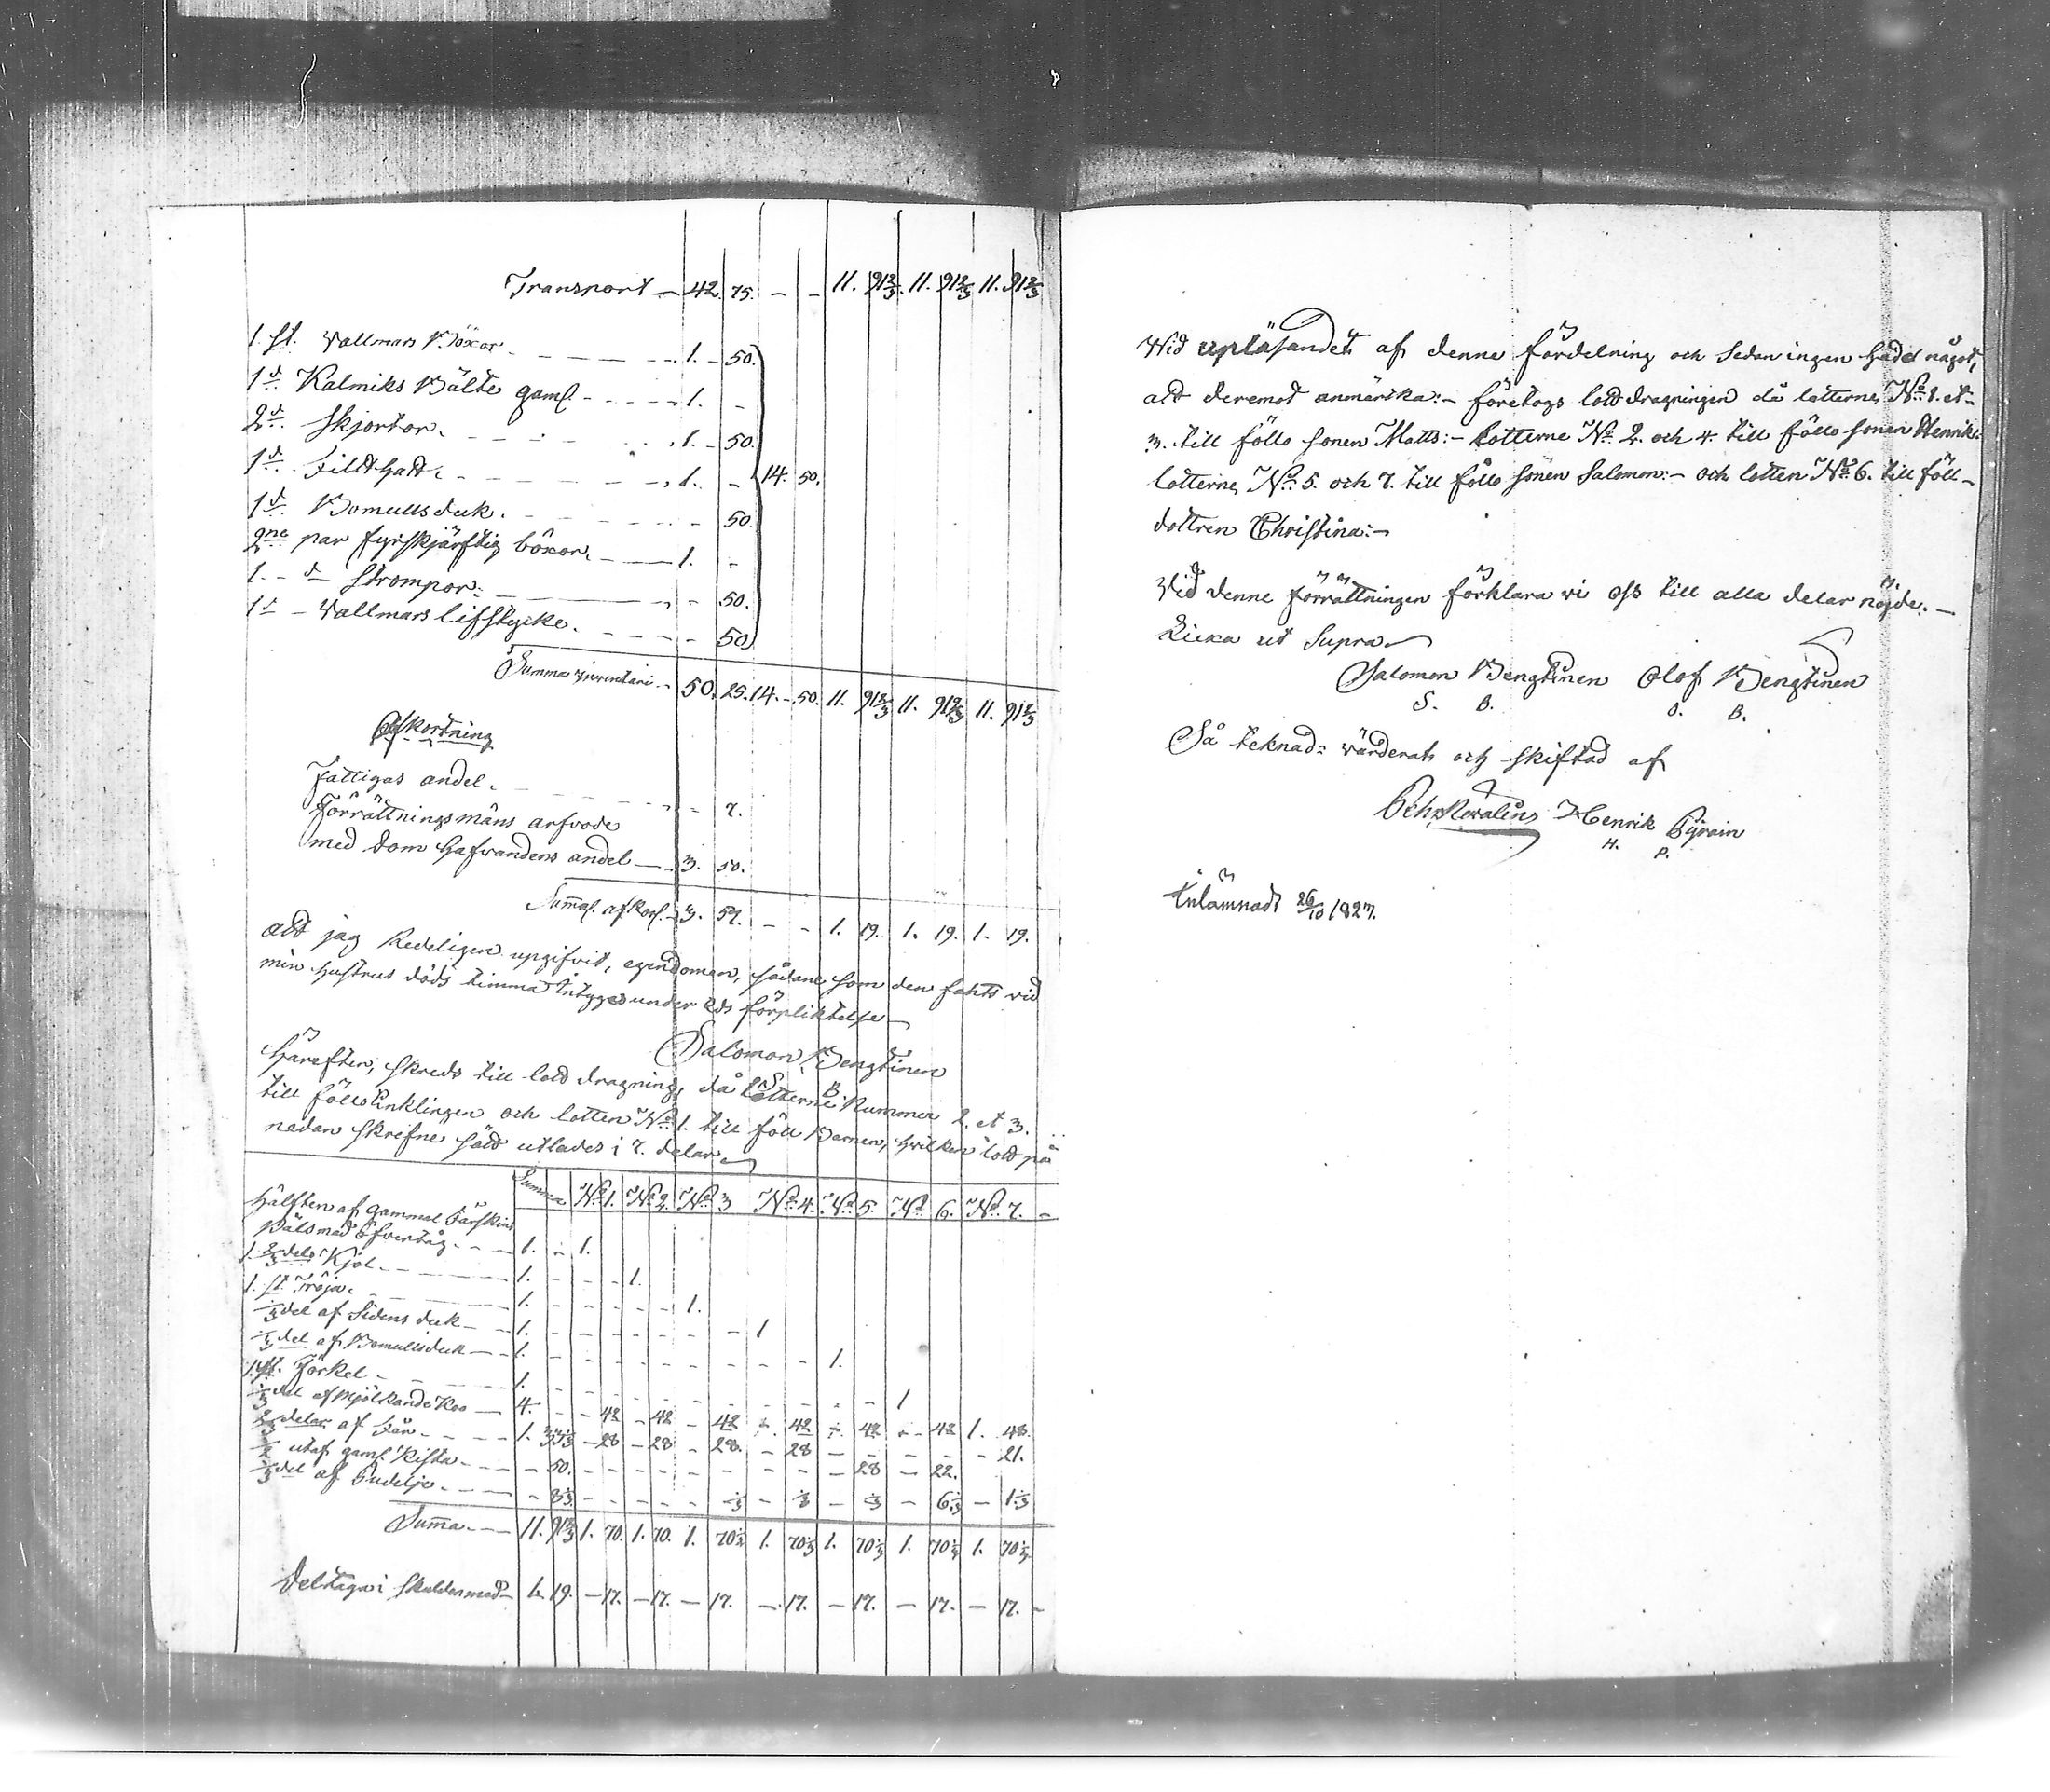 Transport — 42. 75. — — 11. 91⅔. 11. 91⅔ 11. 91⅔
1. st. Wallmars Böxor. — — — 1. — 50.
1 d:o Kalmiks Bälte gaml — — — 1. —
2 d:o Skjortor. — — — 1. — 50.
1 d:o Filthatt. — — — 1. — 14. 50.
1 d:o Bomullsduk. — — — 50.
2ne par fyrskjäftig böxor. — — 1. —
1. – d:o Strompor. — — — 50.
1 d:o – Wallmars lifstycke. — — — 50.
Summa inventarii — 50. 25. 14. – 50. 11. 91⅔ 11. 91⅔ 11. 91⅔
Afkortning
Fattigas andel. — — — 7.
Förrättningsmäns arfvode
med Dom hafvandens andel — 3. 50.
Summa. afkort. — 3. 57. — — 1. 19. 1. 19. 1. 19.
att jag Redeligen upgifvit, egendomen, sådane som den fants vid
min hustrus döds timma Intygas under Eds förpliktelse —
Salomon Bengtinen
S. B.
Härefter, skreds till lottdragning, då Lotterne Nummer 2. et 3.
till föllo Enklingen och lotten N:o 1. till föll Barnen, hvilken lott på
nedan skrefne sätt utlades i 7. delar —
Summa N:o 1. N:o 2. N:o 3 N:o 4. N:o 5. N:o 6. N:o 7. —
Hälften af gammal Fårskins
Päls med Öfvertåg. — — 1. — 1.
1. ⅔ dels Kjol. — — 1. — — — 1.
1. st. Tröja. — — 1. — — — 1.
⅓ del af Sidens duk — — 1. — — — 1
⅓ del af Bomullsduk — — 1. — — — 1.
1. st. Förkel — — 1. — — — 1
⅓ del af Mjölkande Koo — 4. — — 42 — 42 — 42 — 42 — 42 — 42 1. 48.
⅔ delar af Får. — — 1. 33⅓ — 28 — 28 — 28. — 28 — — — — 21.
½ utaf gaml. Kista. — — 50. — — — 28 — 22.
⅓ del af Budelje. — — 8⅓ — — — ⅓ — ⅓ — ⅓ — 6⅓ — 1⅓
Summa. — — 11. 91⅔ 1. 70. 1. 70. 1. 70⅓ 1. 70⅓ 1. 70⅓ 1. 70⅓ 1. 70⅓
Deltager i skulden med — 1. 19. — 17. — 17. — 17. — 17. — 17. — 17. — 17. —
Wid upläsandet af denne fördelning och sedan ingen hade något,
att deremot anmärka: — företogs lottdragningen då lotterne N:o 1. et
3. till föllo sonen Matts: — Lotterne N:o 2. och 4. till föllo sonen Henrik:
lotterne N:o 5. och 7. till föllo sonen Salomon: — och lotten N:o 6. till föll —
dottren Christina: —
Vid denne förrättningen förklara vi oss till alla delar nöjde. —
Lieka ut Supra —
Salomon Bengtinen Olof Bengtinen
S. B. O. B.
Så teknad: värderat och skiftad af
Henrik Pyrain
H. P.
Inlämnad 26/10 1827.